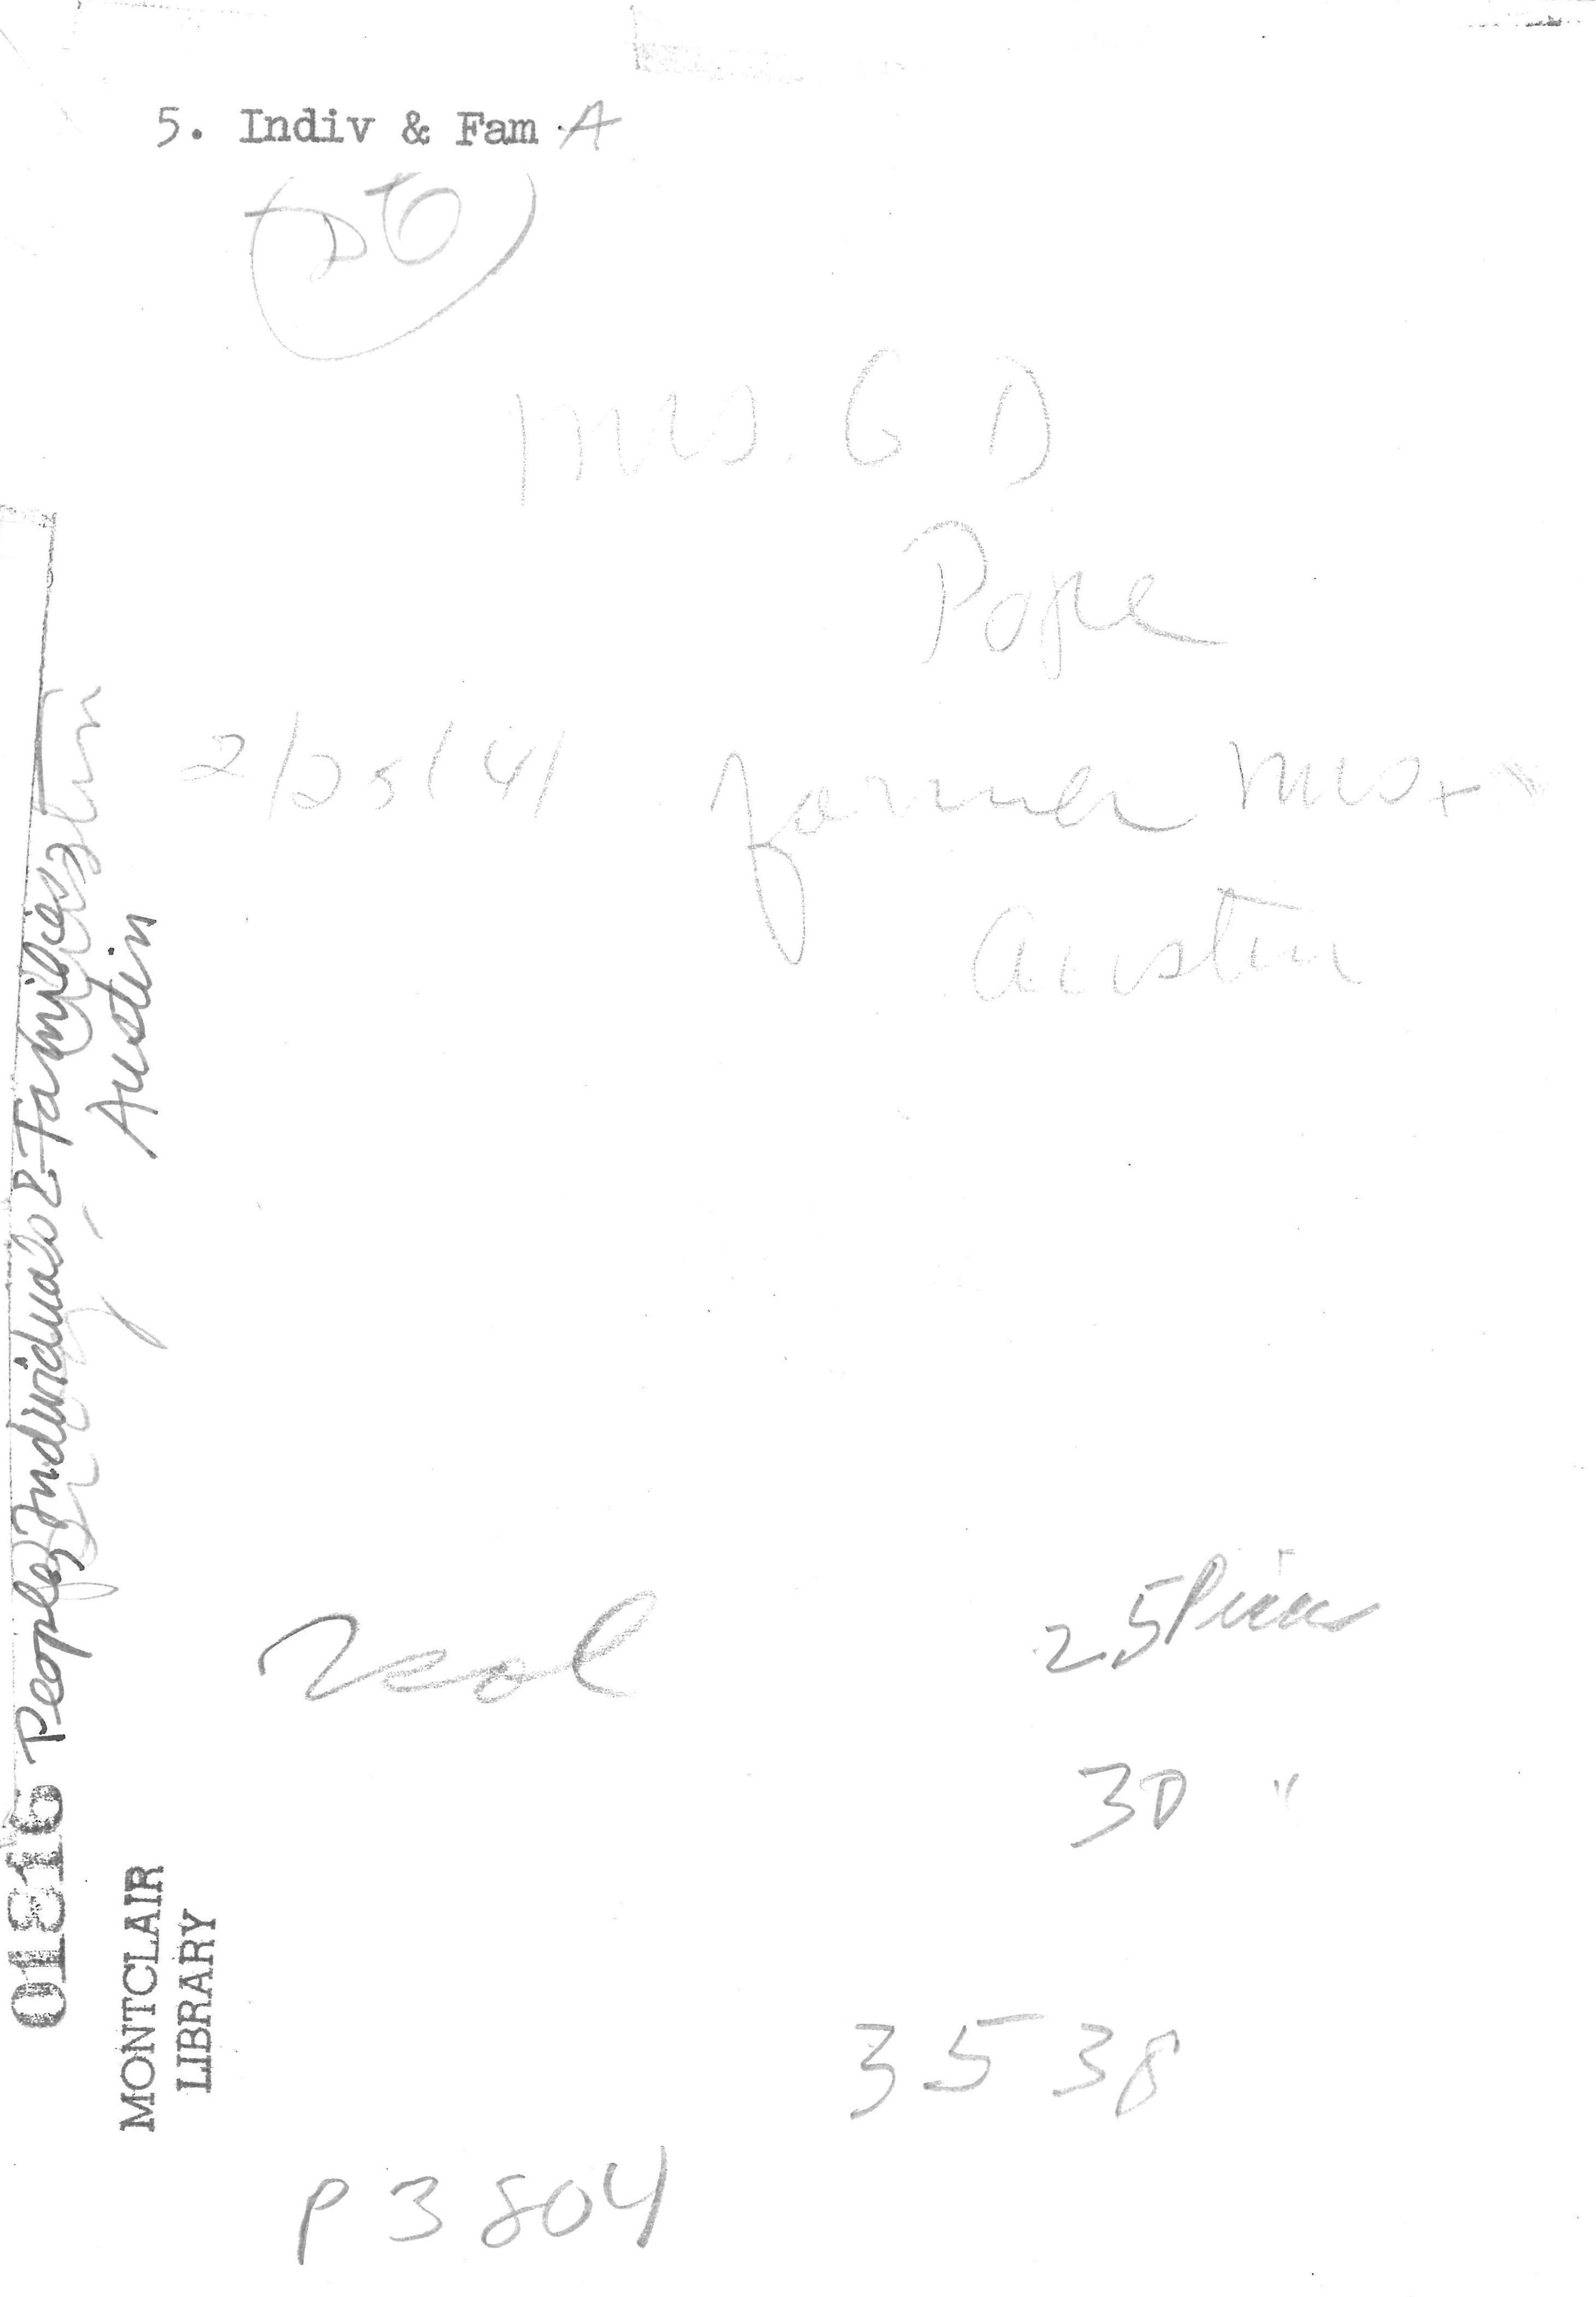 5. Indiv & Fam A
Mrs. G D
Pope
2/25/41 former Mrs.
Austin
People, Individuals & Families
Austin
25
30 "
01816
MONTCLAIR
LIBRARY
3538
P3804